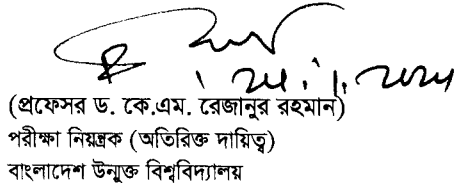 (প্রফেসর ড. কে.এম. রেজানুর রহমান)
পরীক্ষা নিয়ন্ত্রক (অতিরিক্ত দায়িত্ব)
বাংলাদেশ উন্মুক্ত বিশ্ববিদ্যালয়